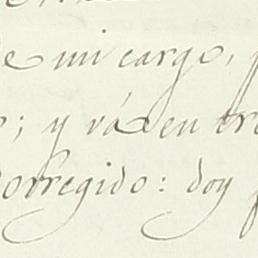 de mi cargo,
; y vá en
corregido: doy